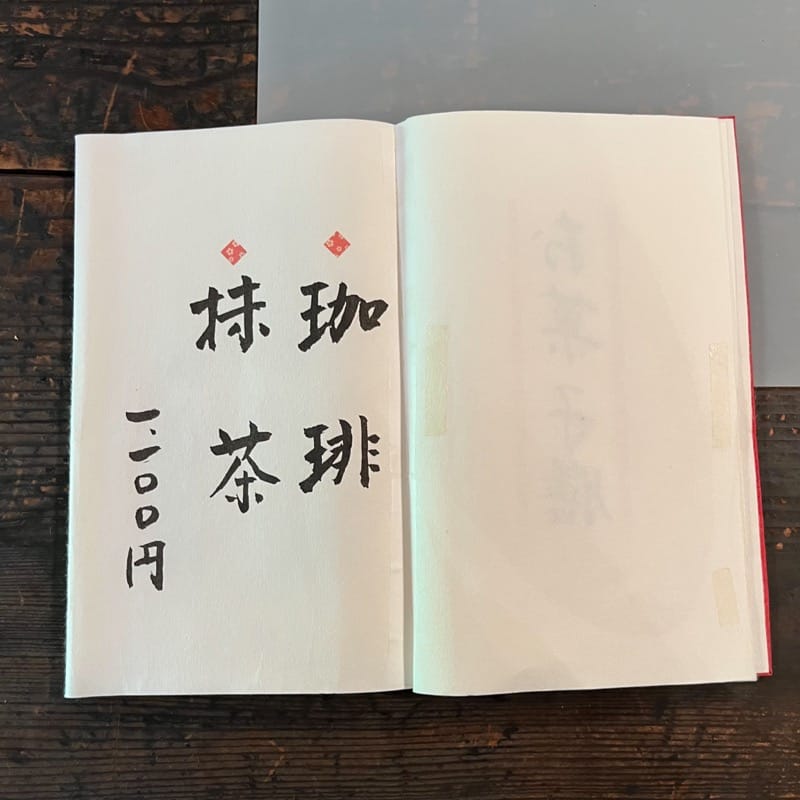 珈琲
抹茶
一、一〇〇円